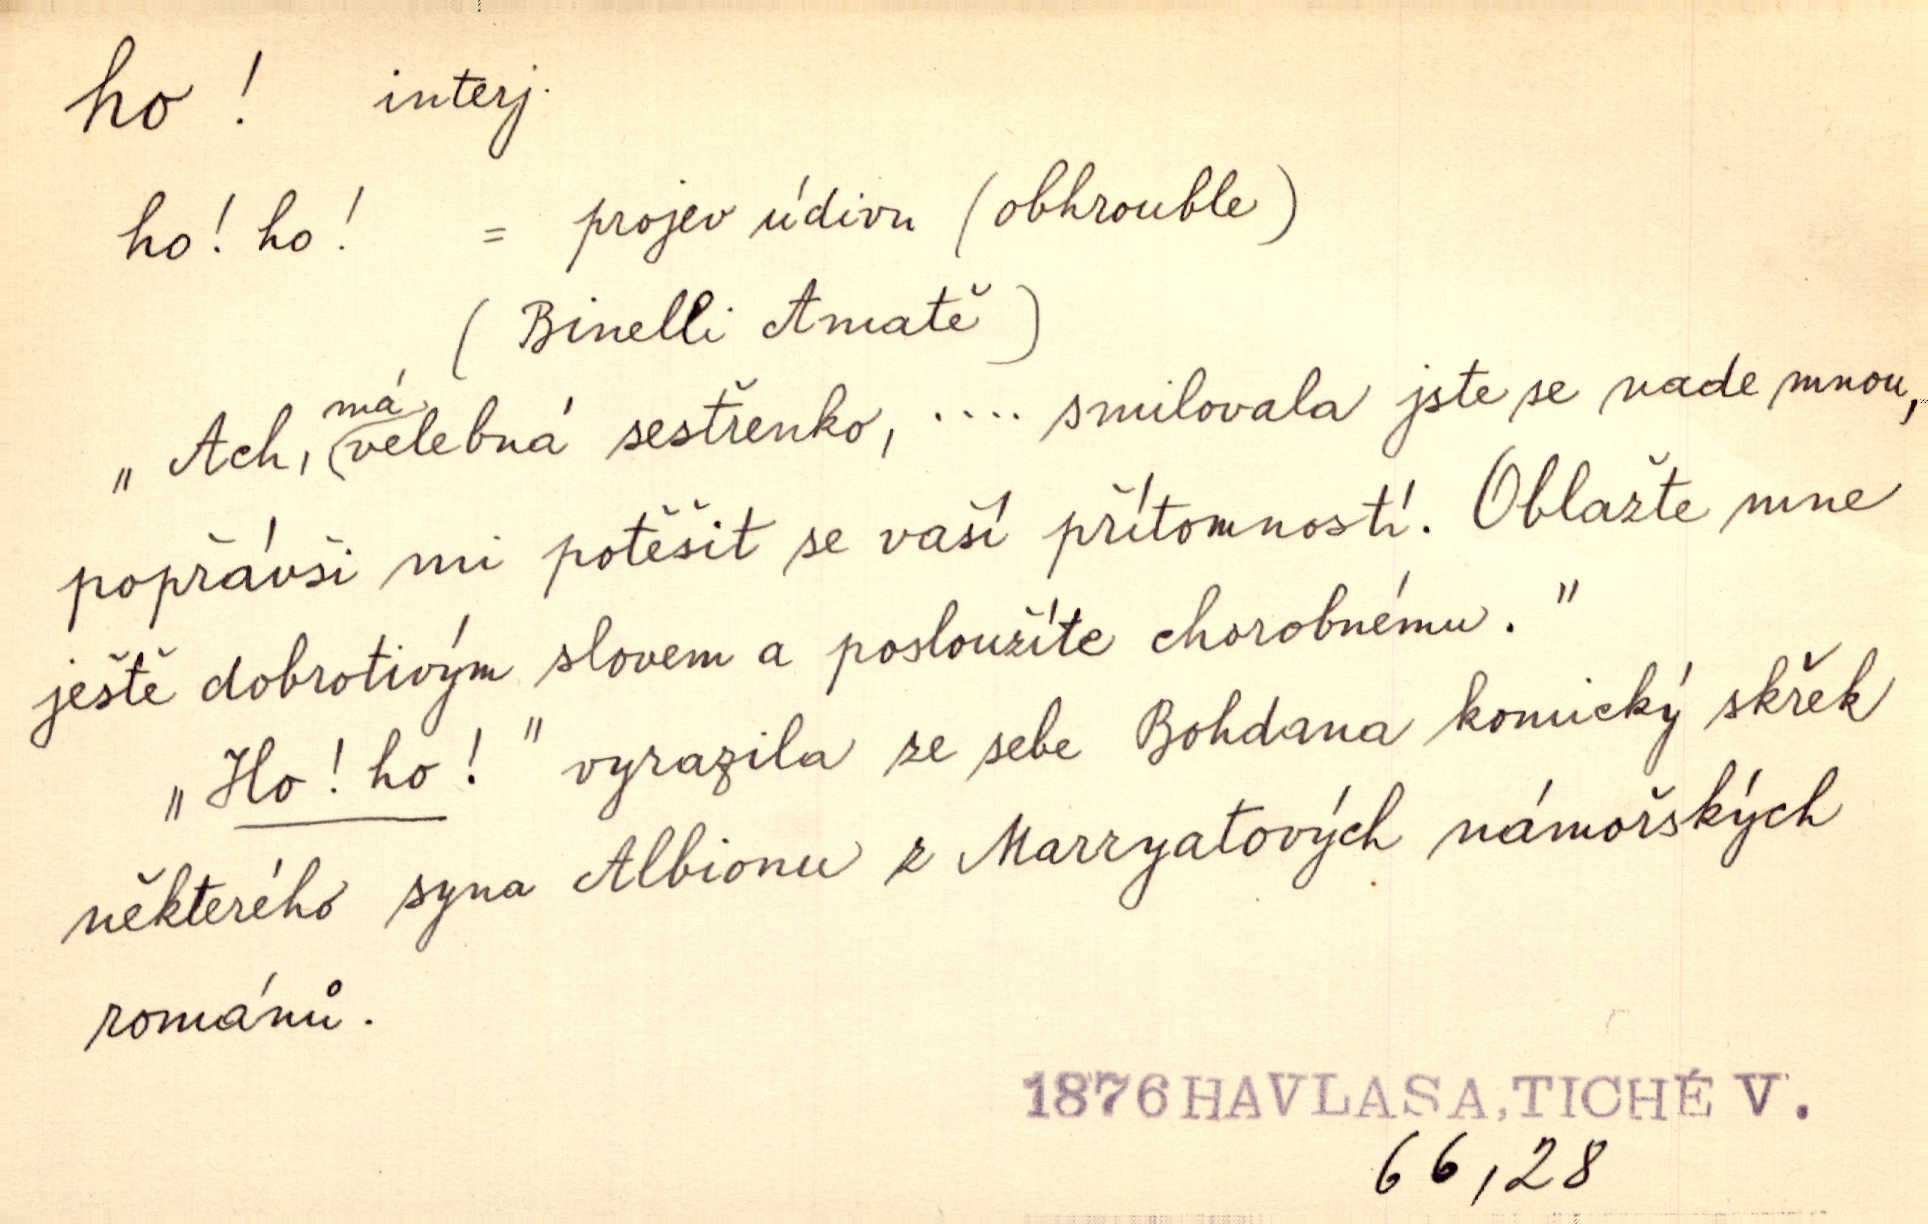 ho! interj.
ho! ho! = projev údivu (obhrouble)
(Binelli Amatě)
„Ach, má velebná sestřenko, .... smilovala jste se nade mnou,
popřávši mi potěšit se vaší přítomností. Oblažte mne
ještě dobrotivým slovem a posloužíte chorobnému."
„Ho! ho!" vyrazila ze sebe Bohdana komický skřek
některého syna Albionu z Marryatových námořských
románů.
1876 HAVLASA, TICHÉ V.
66,28